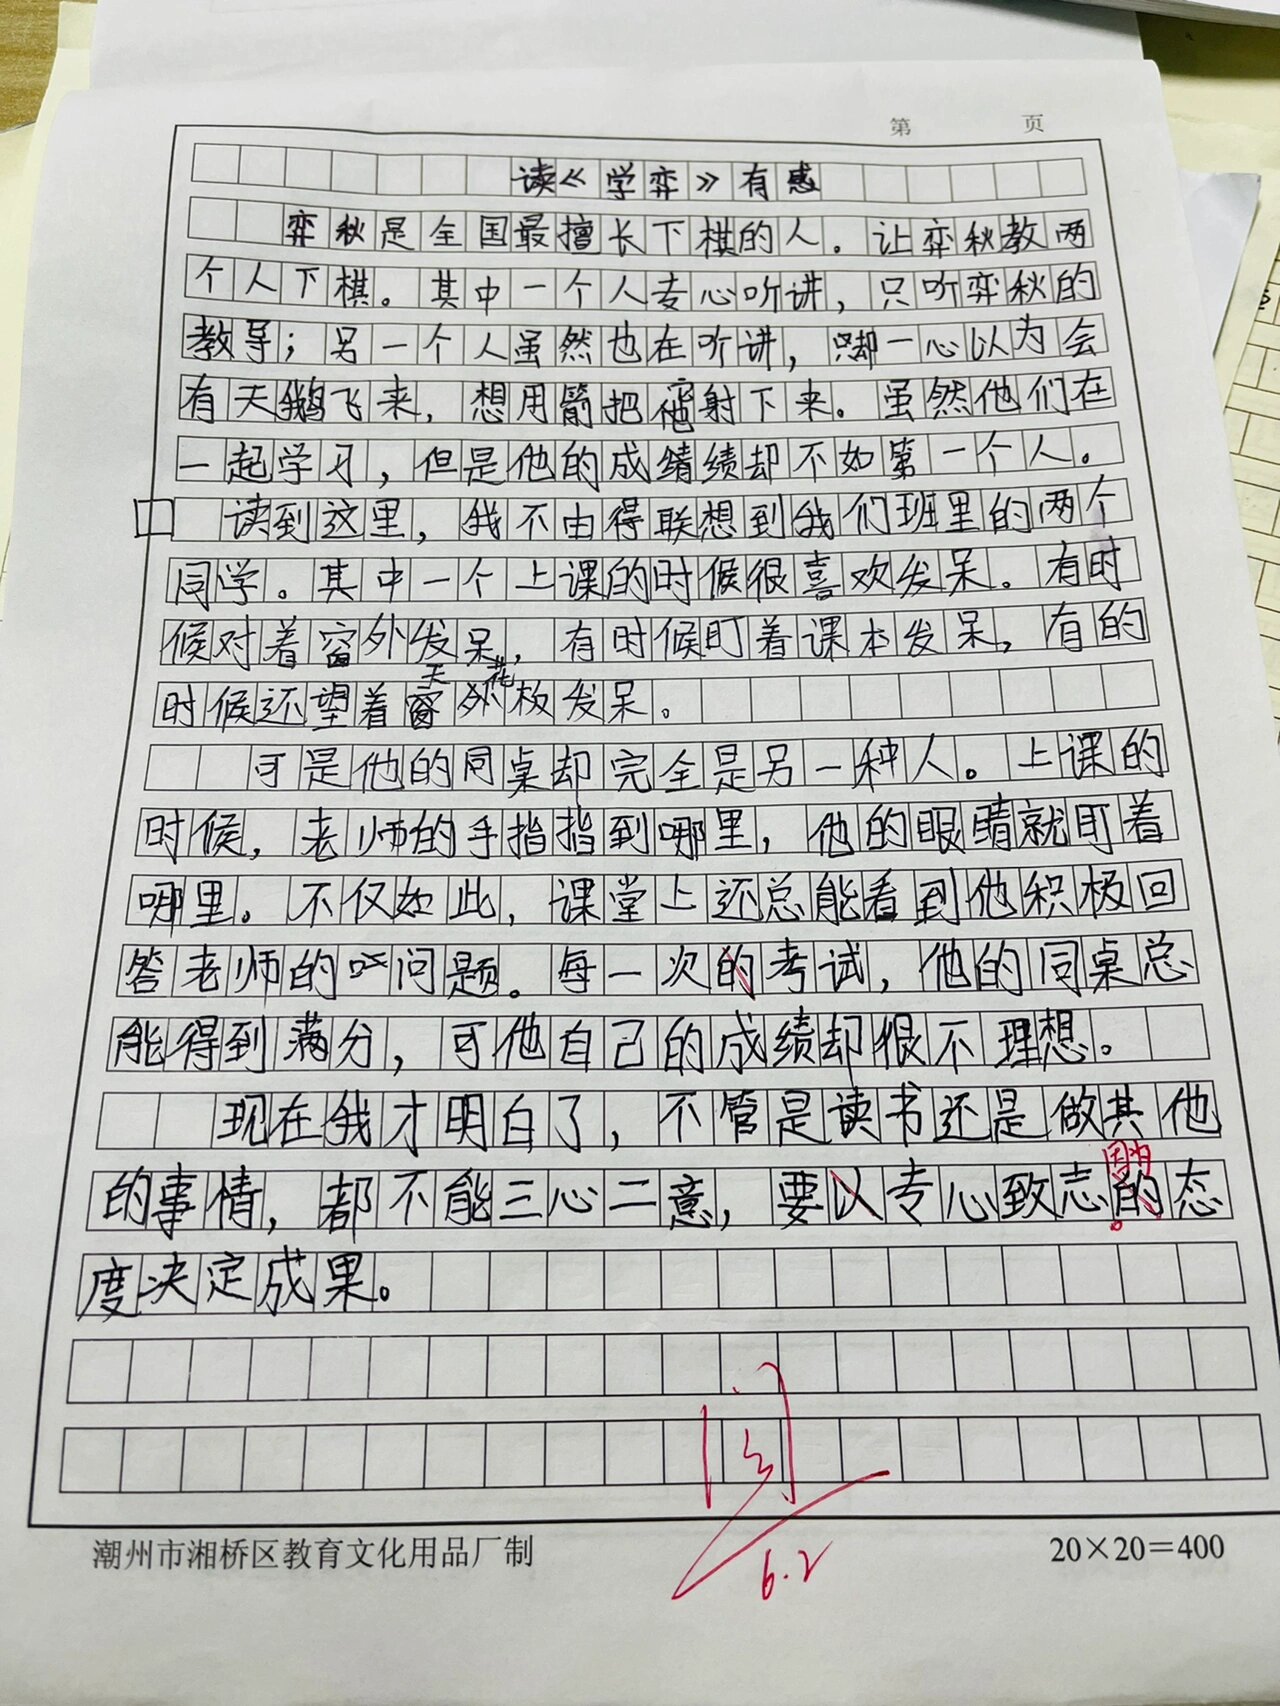 第 页
读《学弈》有感
弈秋是全国最擅长下棋的人。让弈秋教两
个人下棋。其中一个人专心听讲，只听弈秋的
教导；另一个人虽然也在听讲，却一心以为会
有天鹅飞来，想用箭把他射下来。虽然他们在
一起学习，但是他的成绩绩却不如第一个人。
读到这里，我不由得联想到我们班里的两个
同学。其中一个上课的时候很喜欢发呆。有时
候对着窗外发呆，有时候盯着课本发呆，有的
天花
时候还望着窗外板发呆。
可是他的同桌却完全是另一种人。上课的
时候，老师的手指指到哪里，他的眼睛就盯着
哪里。不仅如此，课堂上还总能看到他积极回
答老师的问题。每一次的考试，他的同桌总
能得到满分，可他自己的成绩却很不理想。
现在我才明白了，不管是读书还是做其他
因为
的事情，都不能三心二意，要以专心致志的态
度决定成果。
阅
6.2
潮州市湘桥区教育文化用品厂制
20×20=400